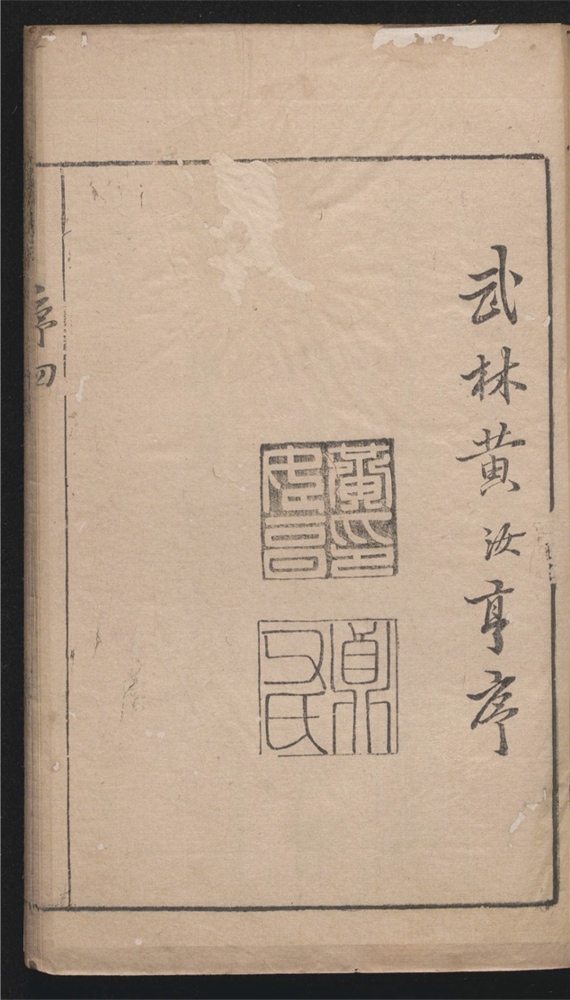 武林黃汝亨序
黃印
貞
父氏
序四